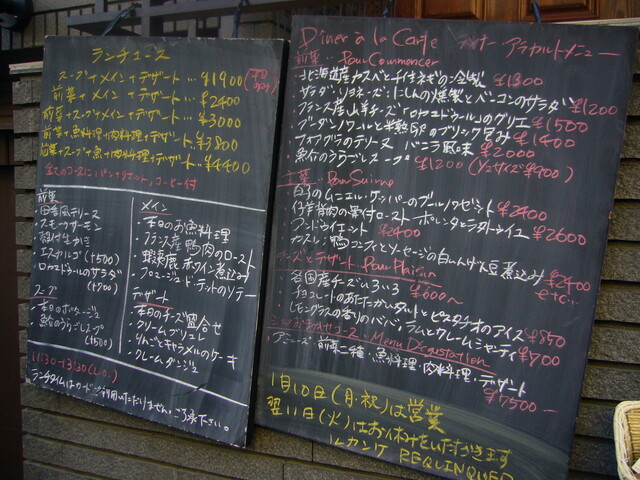 ランチコース
スープ+メイン+デザート… ¥1900 (平日のみ)
前菜+メイン+デザート… ¥2400
前菜+スープ+メイン+デザート… ¥3000
前菜+魚料理+肉料理+デザート… ¥3800
前菜+スープ+魚+肉料理+デザート… ¥4400
全てのコースにパン、コーヒー付
前菜
・田舎風テリーヌ
・スモークサーモン
・殻付生かき
・エスカルゴ (+500)
・ロカマドゥールのサラダ (+700)
スープ
・本日のポタージュ
・魚介のうらごしスープ (+500)
メイン
・本日のお魚料理
・フランス産鴨肉のロースト
・蝦夷鹿 赤ワイン煮込み
・フロマージュ・ド・テットのソテー
デザート
・本日のチーズ盛合せ
・クリームブリュレ
・りんごとキャラメルのケーキ
・クレームダンジュ
11:30-13:30 (L.O.)
ランチタイムはカードご利用いただけません。ご了承下さい。
Diner à la Carte ディナー アラカルトメニュー
前菜… Pour Commencer
・北海道産カスベとちぢみほうれん草の ¥1300
・サラダ・リヨネーズ:にしんの燻製とベーコンのサラダ ¥1200
・フランス産山羊チーズ「ロカマドゥール」のグリエ ¥1500
・ブーダンノワールと半熟卵のブリック包み ¥1400
・フォアグラのテリーヌ バニラ風味 ¥2000
・魚介のうらごしスープ ¥1200 (1/2サイズ¥900)
主菜… Pour Suivre
・白子のムニエル・ケッパーのブールノワゼット ¥2400
・仔羊背肉の骨付ロースト ポレンタとラタトゥイユ ¥2600
・アンドゥイエット ¥2400
・カスレ:鴨コンフィとソーセージの白いんげん豆煮込み ¥2400
etc…
チーズとデザート… Pour Plaisir
・各国産チーズいろいろ ¥600〜
・チョコレートのあたたかいタルトとピスタチオのアイス ¥850
・レモングラスの香りのババ、ラムとクレームシャンティ ¥700
シェフおまかせコース… Menu Dégustation
アミューズ・前菜二種・魚料理・肉料理・デザート
¥7500 —
1月10日(月・祝)は営業
翌11日(火)はお休みをいただきます
ルカンケ REQUINQUER